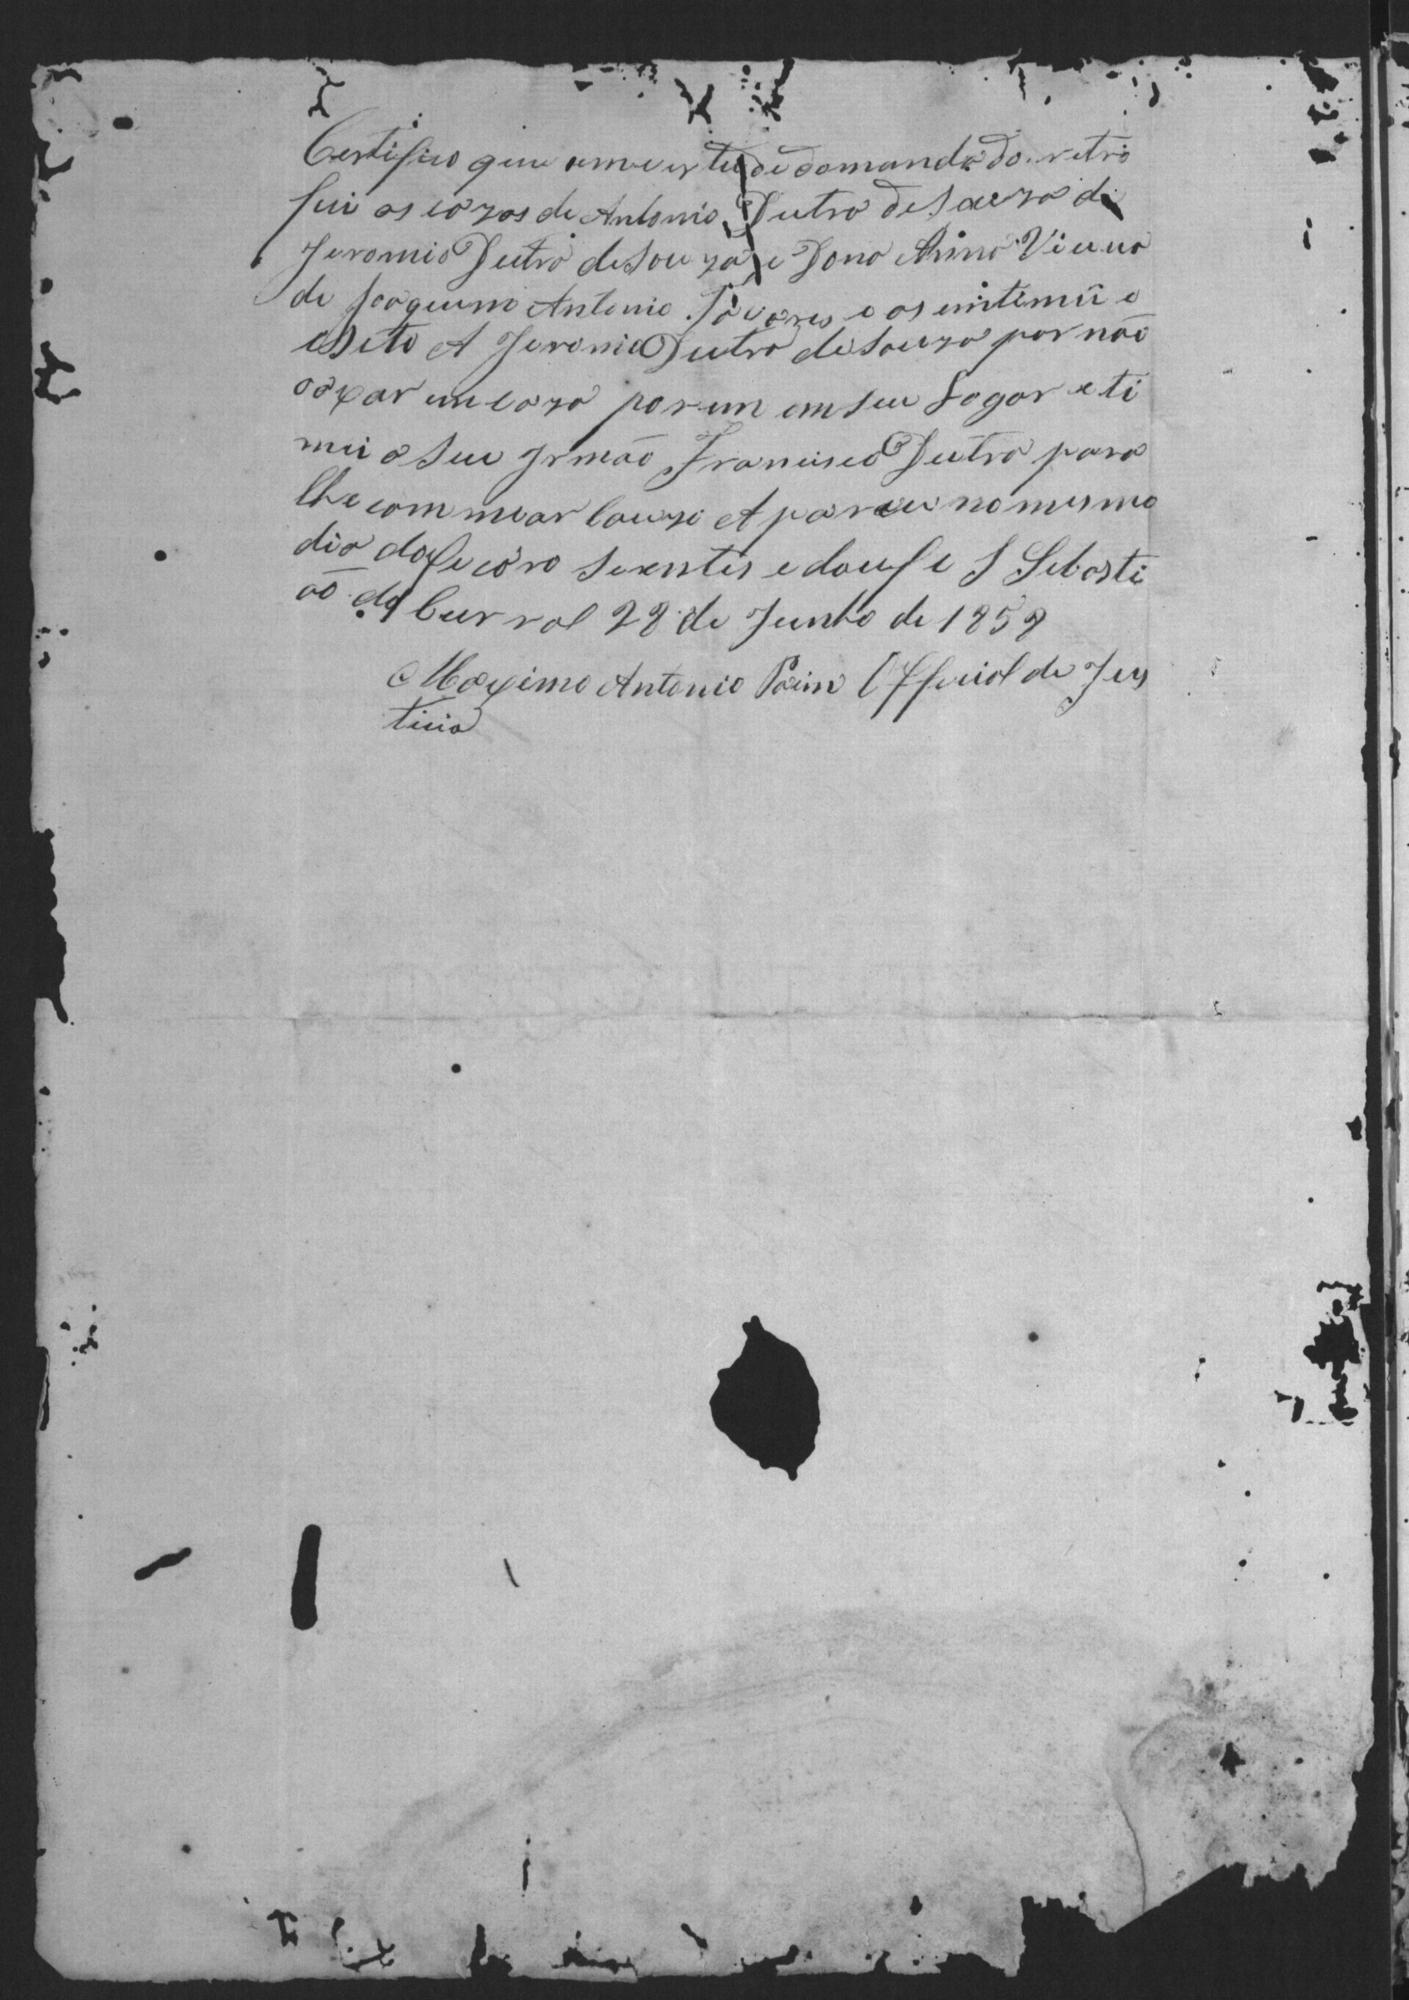 Certifico que emvertude domandado retro
fui as cazas de Antonio Dutra de Souza de
Jeronio Dutra de Souza e Dona Anna Viuva
de Joaquim Antonio Tavares e os intimei e
eseto A Jeronio Dutra de Souza por não
oaxar em caza porem em seu Logar e ti
mei o seu Irmão Francisco Dutra para
lhe commear Couza A parecer no mesmo
dia do ficaro Sientes e dou fe S Sebasti
ão do Curral 28 de Junho de 1858
Maximo Antonio Paim Official de Jus
ticia